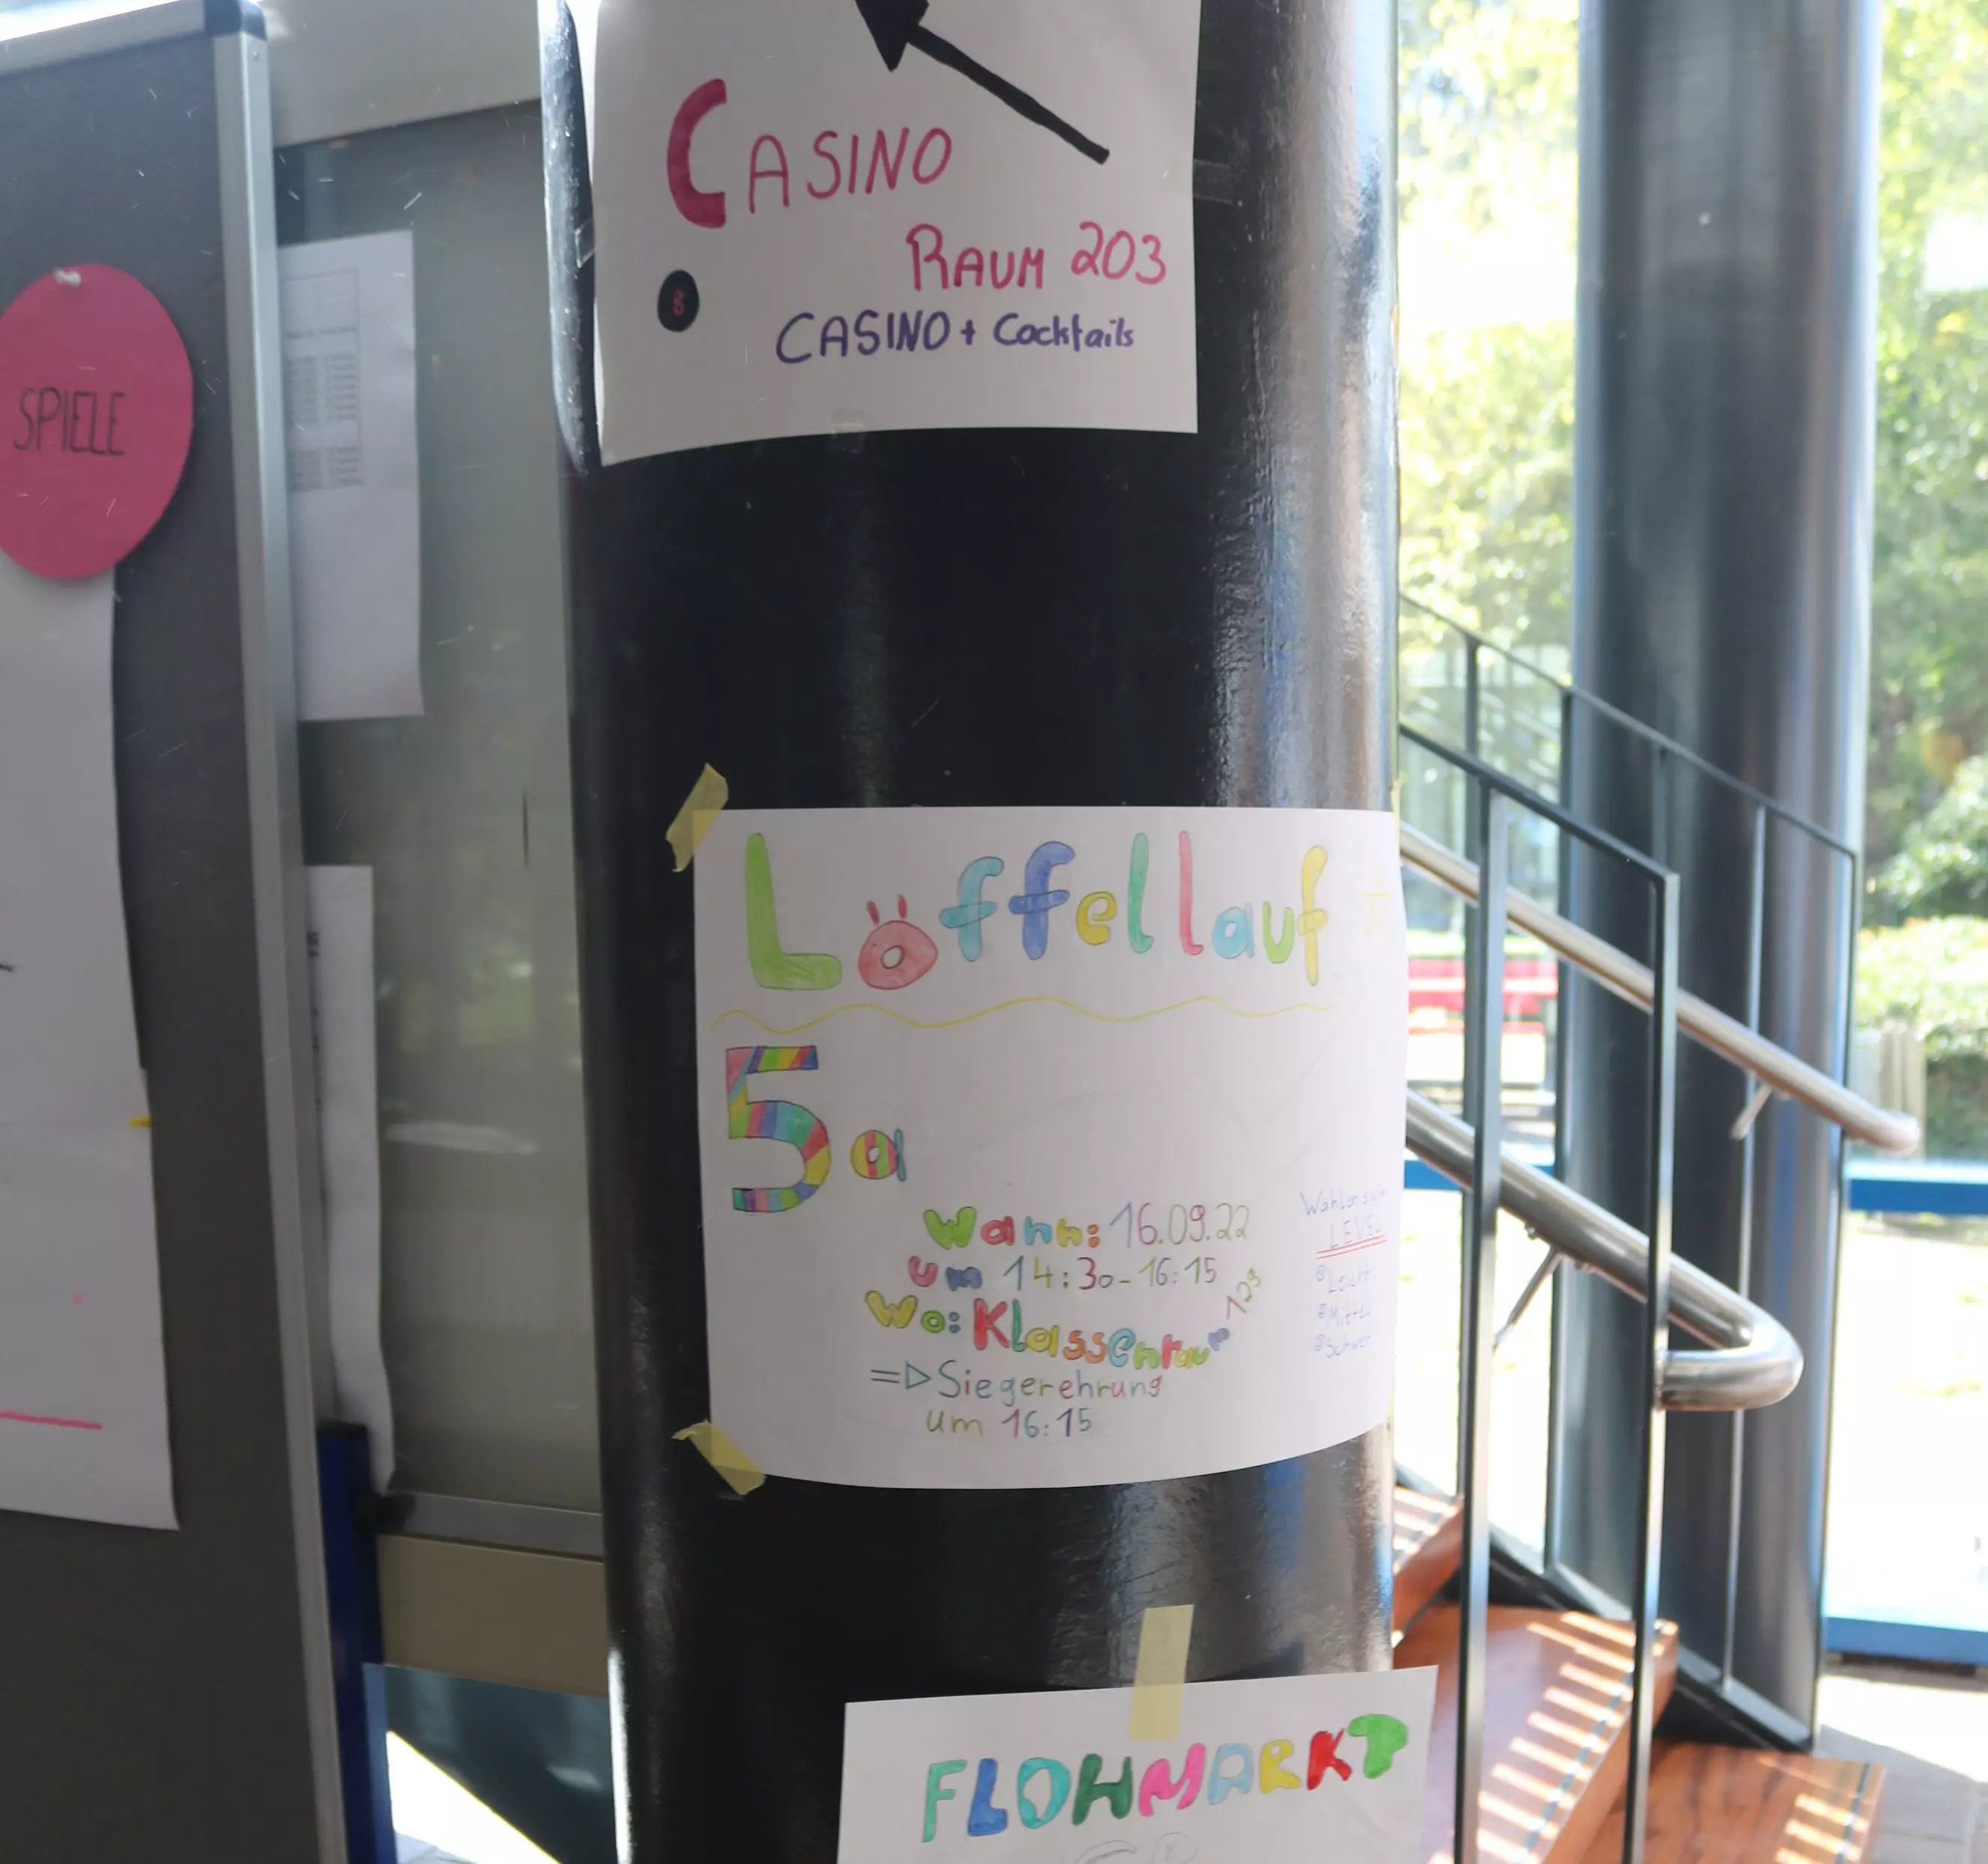 CASINO
RAUM 203
8
CASINO + Cocktails
SPIELE
Löffellauf
5a
Wann: 16.09.22
um 14:30-16:15
Wo: Klassenraum 129
=> Siegerehrung
um 16:15
LEVEL
Leicht
Mittel
Schwer
FLOHMARKT